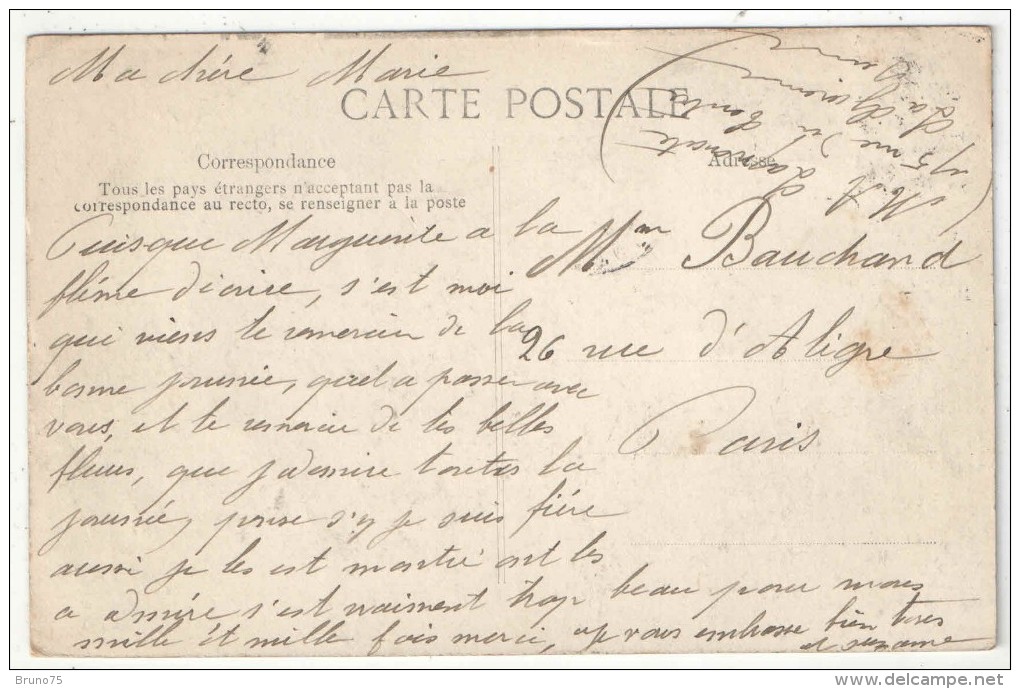 Ma chére Marie
CARTE POSTALE
Correspondance
Adresse
Tous les pays étrangers n'acceptant pas la
correspondance au recto, se renseigner à la poste
Puisque Marguerite a la
fléme d'ecrire, s'est moi
qui viens te remercier de la
bonne journée, quel a passer avec
vous, et te remercie de tes belles
fleurs, que j'admire toutes la
journée, pense s'y je suis fiére
aussi je les est montré ont les
a admire s'est vraiment trop beau pour nous
mille et mille fois merci, je vous embrasse bien tous
et Suzanne
Mme Bauchard
26 rue d'Aligre
Paris
15 rue
La
Bruno75
delcampe.net